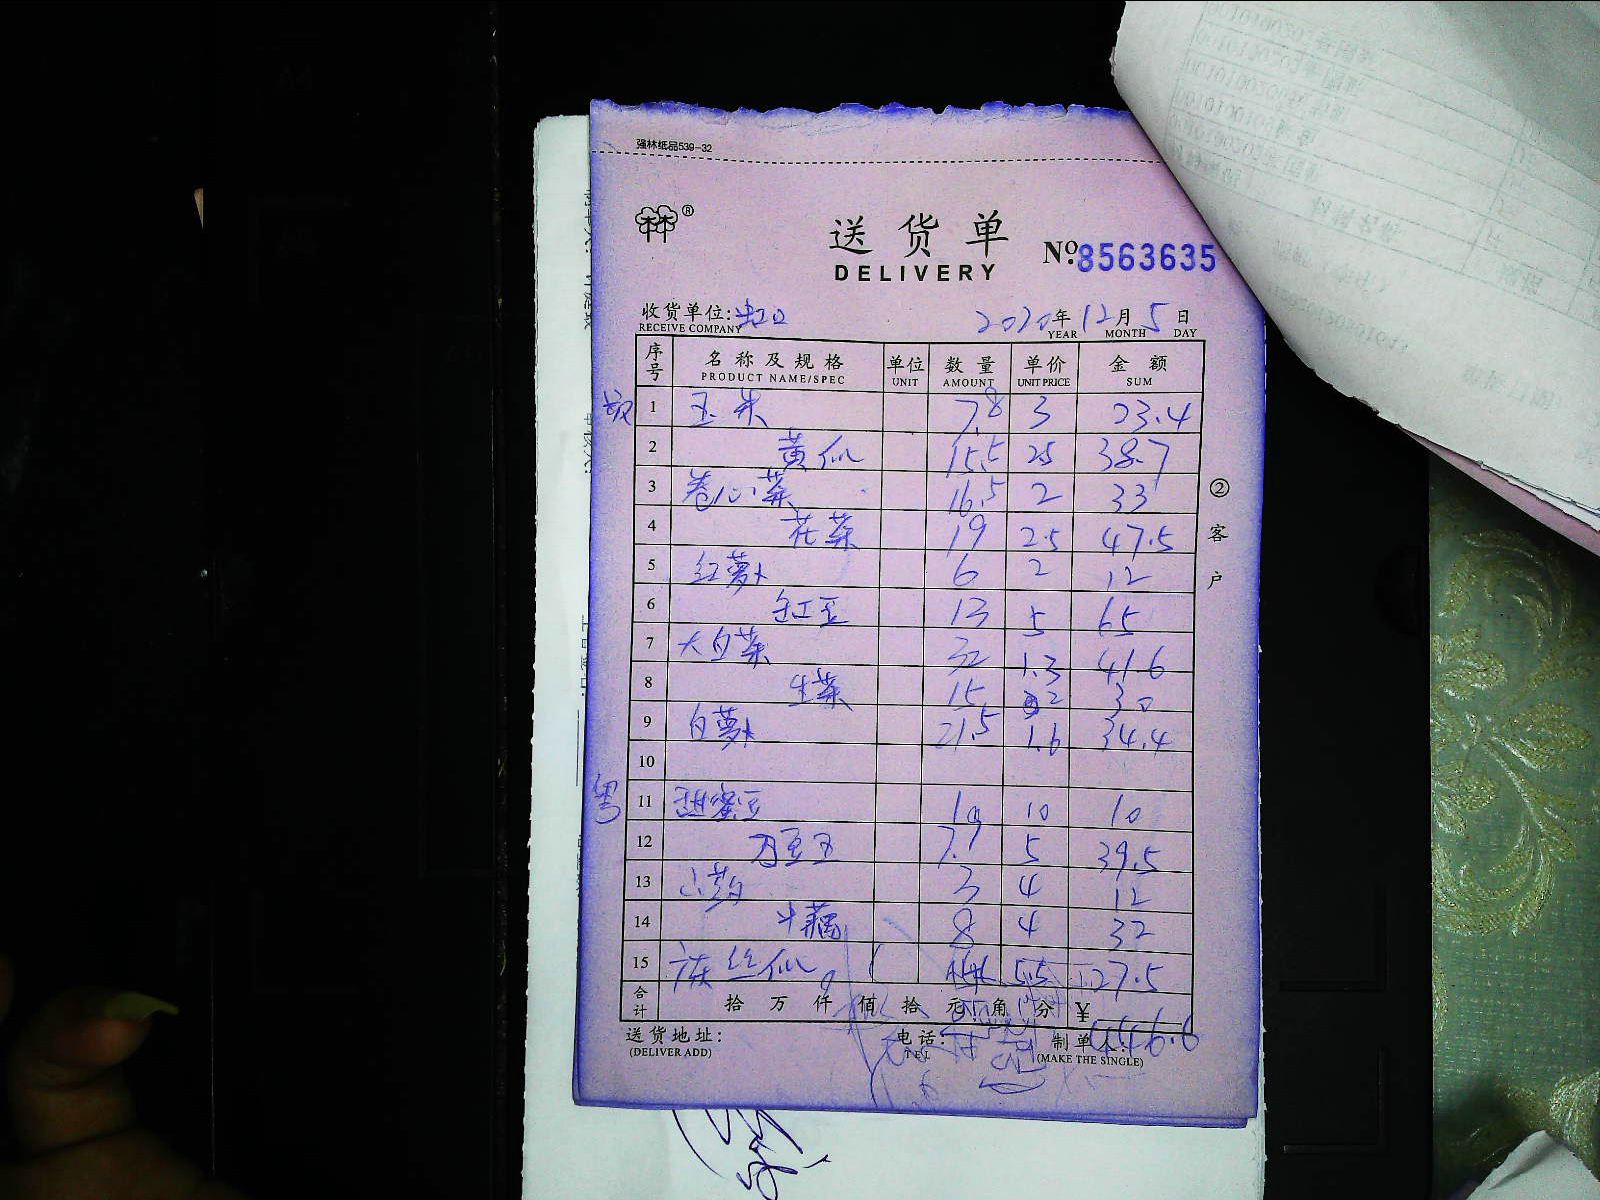 强林纸品539-32
送货单
DELIVERY
№.8563635
收货单位:虹口 2020年12月5日
RECEIVE COMPANY YEAR MONTH DAY
序号 名称及规格 单位 数量 单价 金额
PRODUCT NAME/SPEC UNIT AMOUNT UNIT PRICE SUM
1 玉米 7.8 3 23.4
2 黄瓜 15.5 25 38.7
3 卷心菜 16.5 2 33
4 花菜 19 2.5 47.5
5 红萝卜 6 2 12
6 豇豆 13 5 65
7 大白菜 32 1.3 41.6
8 生菜 15 2 30
9 白萝卜 21.5 1.6 34.4
10
11 甜蜜豆 1 10 10
12 刀豆 7.9 5 39.5
13 山药 3 4 12
14 藕 8 4 32
15 丝瓜 5.5 27.5
合计 拾 万 仟 佰 拾 元 角 分 ¥ 446.6
送货地址: 电话: 制单人:
(DELIVER ADD) TEL (MAKE THE SINGLE)
②客户